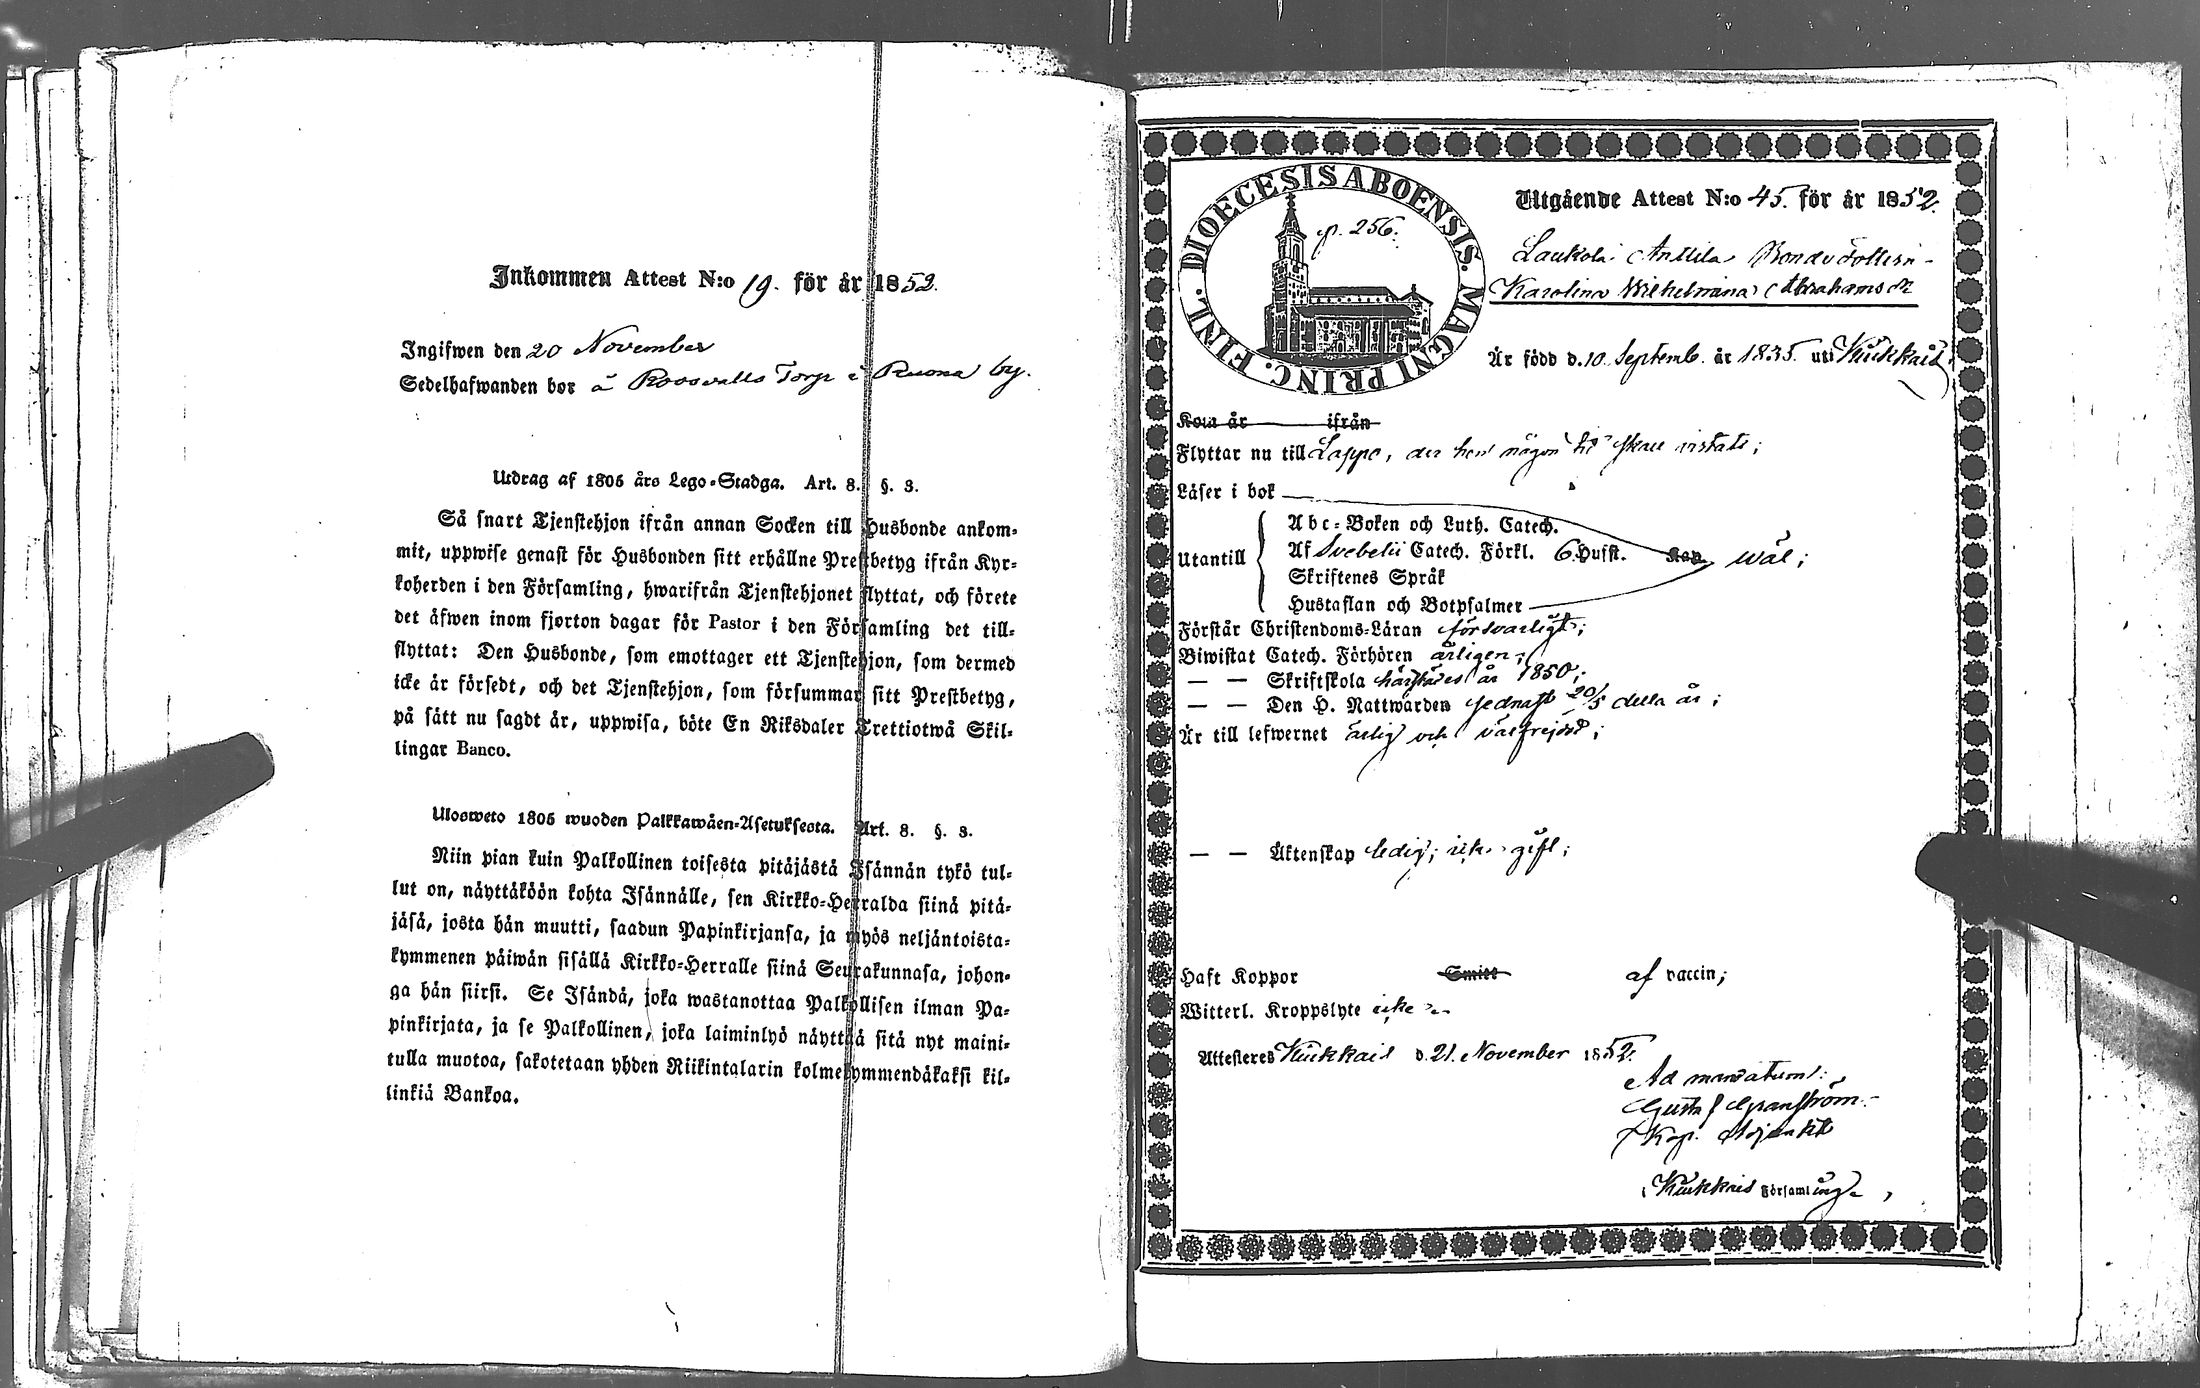 Inkommen Attest N:o 19. för år 1852.
Ingifwen den 20 November
Sedelhafwanden bor å Roosvalls Torp i Ruona by.
Utdrag af 1805 års Lego-Stadga. Art. 8. §. 3.
Så snart Tjenstehjon ifrån annan Socken till Husbonde ankom-
mit, uppwise genast för Husbonden sitt erhållne Prestbetyg ifrån Kyr-
koherden i den Församling, hwarifrån Tjenstehjonet flyttat, och förete
det äfwen inom fjorton dagar för Pastor i den Församling det till-
flyttat: Den Husbonde, som emottager ett Tjenstehjon, som dermed
icke är försedt, och det Tjenstehjon, som försummar sitt Prestbetyg,
på sätt nu sagdt är, uppwisa, böte En Riksdaler Trettiotwå Skil-
lingar Banco.
Ulosweto 1805 wuoden Palkkawäen-Asetuksesta. Art. 8. §. 3.
Niin pian kuin Palkollinen toisesta pitäjästä Isännän tykö tul-
lut on, näyttäköön kohta Isännälle, sen Kirkko-Herralda siinä pitä-
jäsä, josta hän muutti, saadun Papinkirjansa, ja myös neljäntoista-
kymmenen päiwän sisällä Kirkko-Herralle siinä Seurakunnasa, johon-
ga hän siirsi. Se Isändä, joka wastanottaa Palkollisen ilman Pa-
pinkirjata, ja se Palkollinen, joka laiminlyö näyttää sitä nyt maini-
tulla muotoa, sakotetaan yhden Riikintalarin kolmekymmendäkaksi kil-
linkiä Bankoa.
DIOECESIS ABOENSIS. MAGNI PRINC. FINL.
p. 256.
Utgående Attest N:o 45. för år 1852.
Laukola Anttila Bonde
Karolina Wilhelmina Abrahamsdr
Är född d. 10. Septemb. år 1835. uti Kiukkais
Kom år ifrån
Flyttar nu till Lappo, der hon någon tid skall vistats;
Läser i bok
Utantill
Abc-Boken och Luth. Catech.
Af Svebelii Catech. Förkl. 6. Hufst. Kap. wäl;
Skriftenes Språk
Hustaflan och Botpsalmer
Förstår Christendoms-Läran försvarligt;
Biwistat Catech. Förhören årligen;
— — Skriftskola härstädes år 1850;
— — Den H. Nattwarden sednast 20/5 detta år;
Är till lefwernet ärlig och välfrejdad;
— — Äktenskap ledig; icke gift;
Haft Koppor Smitt af vaccin;
Witterl. Kroppslyte icke
Attesteres Kiukkais d. 21. November 1852.
Ad mandatum:
Gustaf Granström
Kap. Adjunkt
i Kiukkais Församling